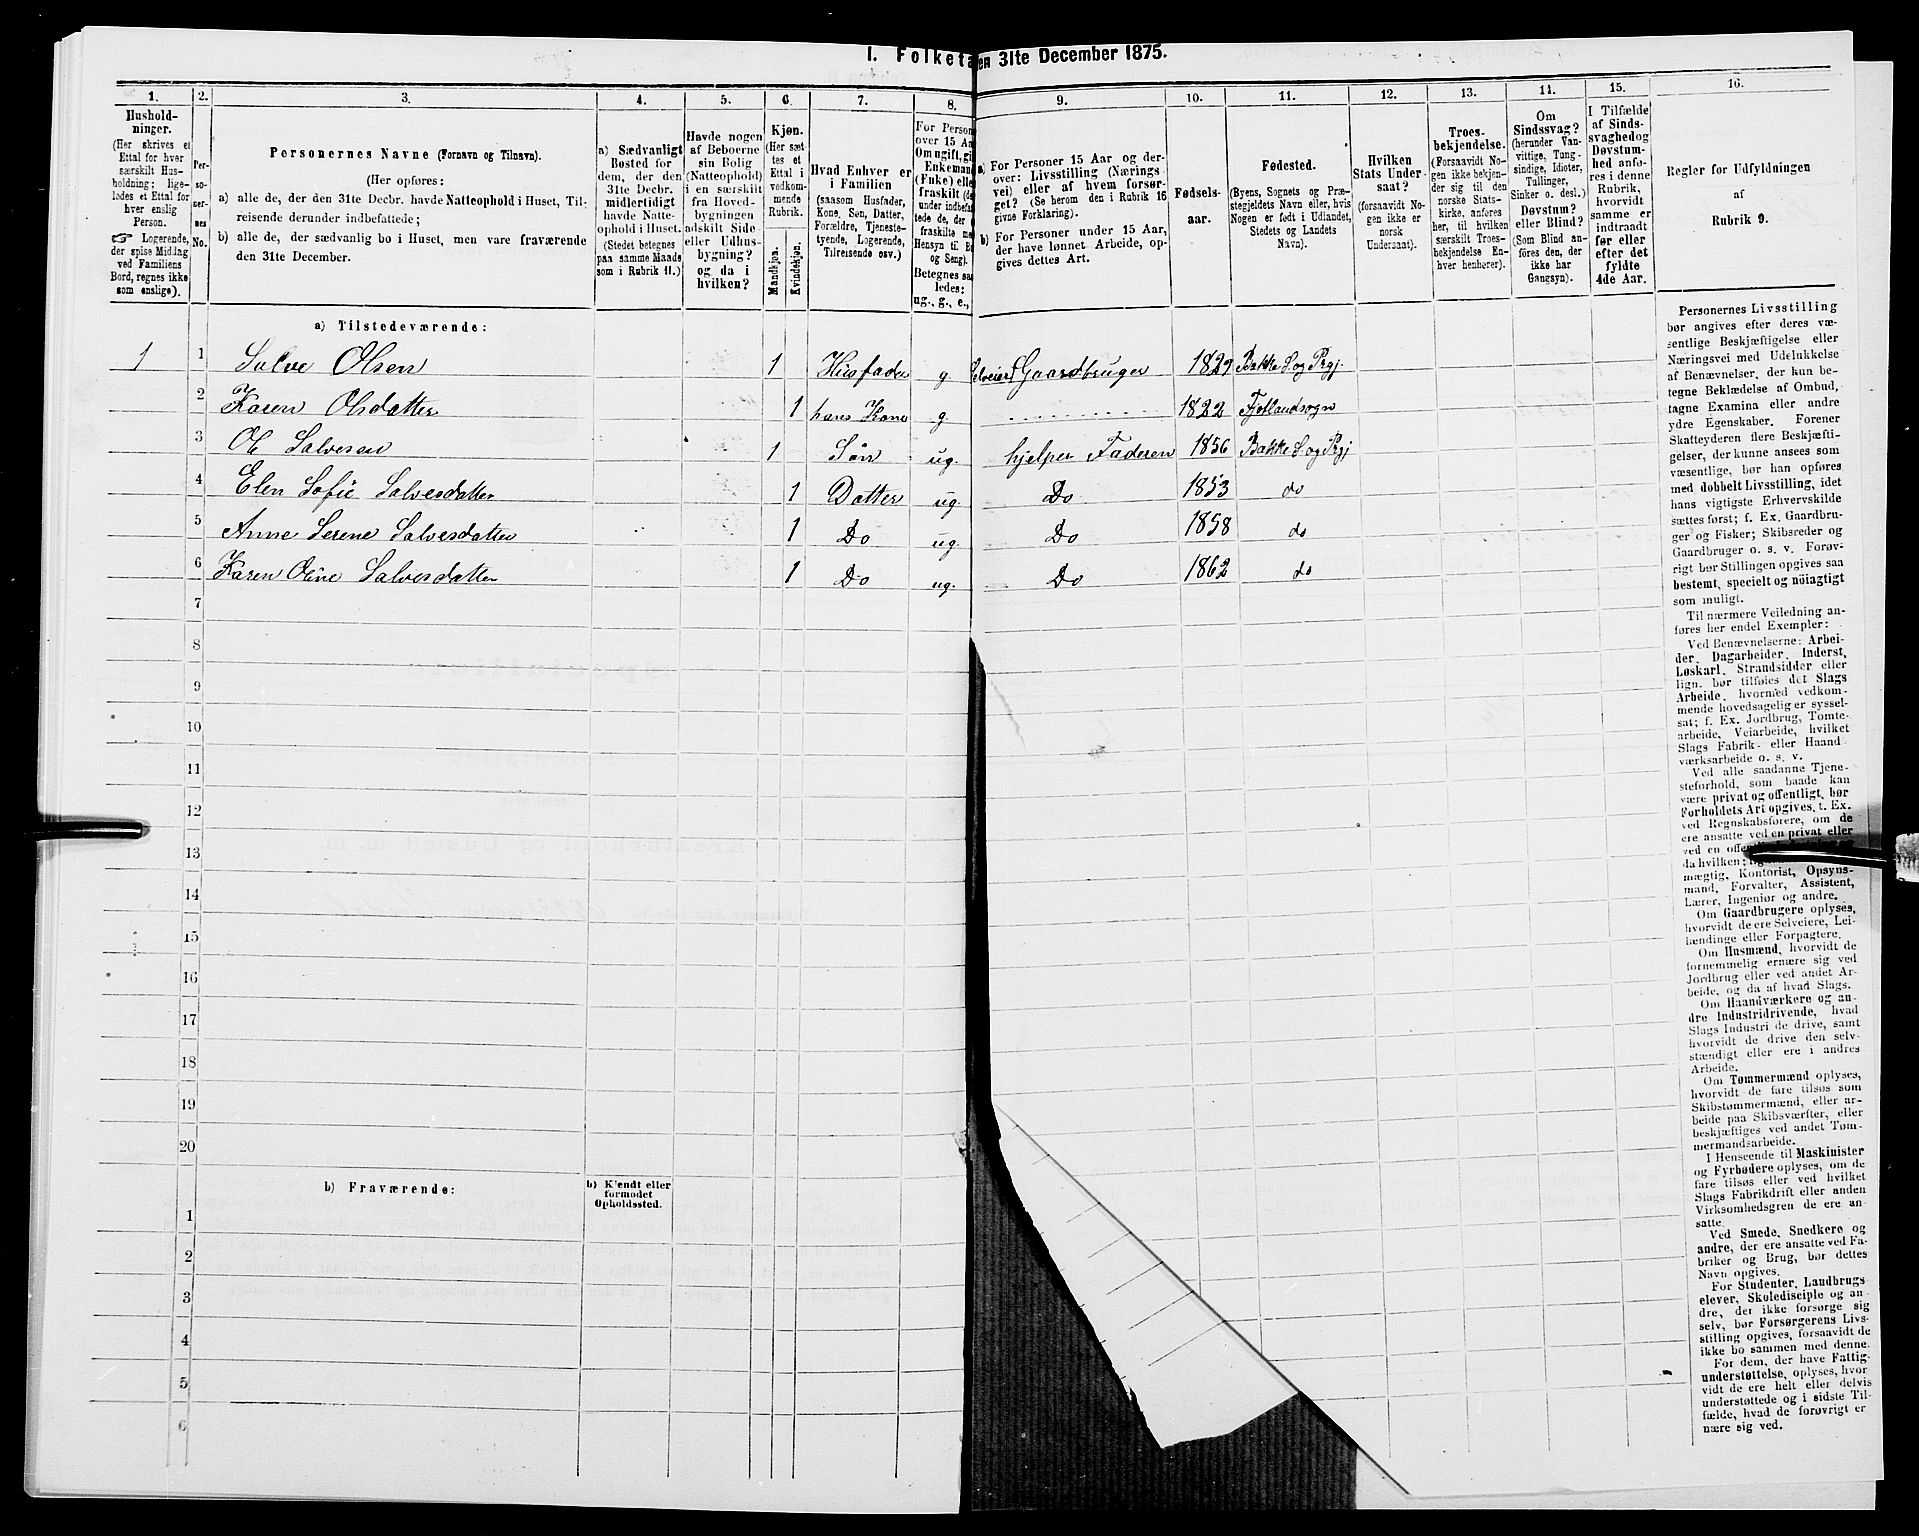 I. Folketa en 31te December 1875.
1. 2. 3. 4. 5. 6. 7. 8. 9. 10. 11. 12. 13. 14. 15. 16.
Hushold-
ninger.
(Her skrives et
Ettal for hver
særskilt Hus-
holdning; lige-
ledes et Ettal for
hver enslig
Person.
☞ Logerende,
der spise Middag
ved Familiens
Bord, regnes ikke
som enslige).
Per-
so-
ner-
nes
No.
Personernes Navne (Fornavn og Tilnavn).
(Her opføres:
a) alle de, der den 31te Decbr. havde Natteophold i Huset, Til-
reisende derunder indbefattede;
b) alle de, der sædvanlig bo i Huset, men vare fraværende
den 31te December.
a) Sædvanligt
Bosted for
dem, der den
31te Decbr.
midlertidigt
havde Natte-
ophold i Huset.
(Stedet betegnes
paa samme Maade
som i Rubrik 11.)
Havde nogen
af Beboerne
sin Bolig
(Natteophold)
i en særskilt
fra Hoved-
bygningen
adskilt Side-
eller Udhus-
bygning?
og da i
hvilken?
Kjøn.
(Her sæt-
tes et
Ettal i
vedkom-
mende
Rubrik.
Mandkjøn.
Kvindekjøn.
Hvad Enhver er
i Familien
(saasom Husfader,
Kone, Søn, Datter,
Forældre, Tjeneste-
tyende, Logerende,
Tilreisende osv.)
For Person
over 15 Aa
Om ugift, gi
Enkeman
(Enke) elle
fraskilt (de
under indbefat
tede de, der
fraskilte me
Hensyn til Bo
og Seng).
Betegnes saa
ledes:
ug., g., e.,
a) For Personer 15 Aar og der-
over: Livsstilling (Nærings
vei) eller af hvem forsør-
get? (Se herom den i Rubrik 16
givne Forklaring).
b) For Personer under 15 Aar,
der have lønnet Arbeide, op-
gives dettes Art.
Fødsels-
aar.
Fødested.
(Byens, Sognets og Præ-
stegjeldets Navn eller, hvis
Nogen er født i Udlandet,
Stedets og Landets
Navn).
Hvilken
Stats Under-
saat?
(forsaavidt No-
gen ikke er
norsk
Undersaat).
Troes-
bekjendelse.
(Forsaavidt No-
gen ikke bekjen-
der sig til den
norske Stats-
kirke, anføres
her, til hvilken
særskilt Troes-
bekjendelse En-
hver henhører).
Om
Sindssvag?
(herunder Van-
vittige, Tung-
sindige, Idioter,
Tullinger,
Sinker o. desl.)
Døvstum?
eller Blind?
(Som Blind an-
føres den, der
ikke har
Gangsyn).
I Tilfælde
af Sinds-
svaghed og
Døvstum-
hed anfø-
res i denne
Rubrik,
hvorvidt
samme er
indtraadt
før eller
efter det
fyldte
4de Aar.
Regler for Udfyldningen
af
Rubrik 9.
a) Tilstedeværende:
1 1 Salve Olsen 1 Husfader g Selveier Gaardbruger 1829 Bakke S og Prgj.
2 Karen Olsdatter 1 hans Kone g. 1822 Fjotlandsogn
3 Ole Salvesen 1 Søn ug. hjelper Faderen 1856 Bakke S og Prgj
4 Elen Sofie Salvesdatter 1 Datter ug Do 1853 do
5 Anne Serene Salvesdatter 1 Do ug. Do 1858 do
6 Karen Oline Salvesdatter 1 Do ug. Do 1862 do
7
8
9
10
11
12
13
14
15
16
17
18
19
20
b) Fraværende:
b) Kjendt eller
formodet
Opholdssted.
1
2
3
4
5
6
Personernes Livsstilling
bør angives efter deres væ-
sentlige Beskjæftigelse eller
Næringsvei med Udelukkelse
af Benævnelser, der kun be-
tegne Beklædelse af Ombud,
tagne Examina eller andre
ydre Egenskaber. Forener
Skatteyderen flere Beskjæfti-
gelser, der kunne ansees som
væsentlige, bør han opføres
med dobbelt Livsstilling, idet
hans vigtigste Erhvervskilde
sættes først; f. Ex. Gaardbru-
ger og Fisker; Skibsreder og
Gaardbruger o. s. v. Forøv-
rigt bør Stillingen opgives saa
bestemt, specielt og nöiagtigt
som muligt.
Til nærmere Veiledning an-
føres her endel Exempler:
Ved Benævnelserne: Arbei-
der, Dagarbeider, Inderst,
Løskarl, Strandsidder eller
lign. bør tilføies det Slags
Arbeide, hvormed vedkom-
mende hovedsagelig er syssel-
sat; f. Ex. Jordbrug, Tomte-
arbeide, Veiarbeide, hvilket
Slags Fabrik- eller Haand
værksarbeide o. s. v.
Ved alle saadanne Tjene-
steforhold, som baade kan
være privat og offentligt, bør
Forholdets Art opgives, t. Ex.
ved Regnskabsførere, om de
ere ansatte ved en privat eller
ved en
da hvilken;
mægtig, Kontorist, Opsyns-
mand, Forvalter, Assistent,
Lærer, Ingeniør og andre.
Om Gaardbrugere oplyses,
hvorvidt de ere Selveiere, Lei-
lændinge eller Forpagtere.
Om Husmænd, hvorvidt de
fornemmelig ernære sig ved
Jordbrug eller ved andet Ar-
beide, og da af hvad Slags.
Om Haandværkere og an-
dre Industridrivende, hvad
Slags Industri de drive, samt
hvorvidt de drive den selv-
stændigt eller ere i andres
Arbeide.
Om Tømmermænd oplyses,
hvorvidt de fare tilsøs som
Skibstømmermænd, eller ar-
beide paa Skibsværfter, eller
beskjæftiges ved andet Tøm-
mermandsarbeide.
I Henseende til Maskinister
og Fyrbødere oplyses, om de
fare tilsøs eller ved hvilket
Slags Fabrikdrift eller anden
Virksomhedsgren de ere an-
satte.
Ved Smede, Snedkere og
andre, der ere ansatte ved Fa-
briker og Brug, bør dettes
Navn opgives.
For Studenter, Landbrugs
elever, Skoledisciple og an-
dre, der ikke forsørge sig
selv, bør Forsørgerens Livs-
stilling opgives, forsaavidt de
ikke bo sammen med denne.
For dem, der have Fattig-
understøttelse, oplyses, hvor-
vidt de ere helt eller delvis
understøttede og i sidste Til-
fælde, hvad de forøvrigt er
nære sig ved.